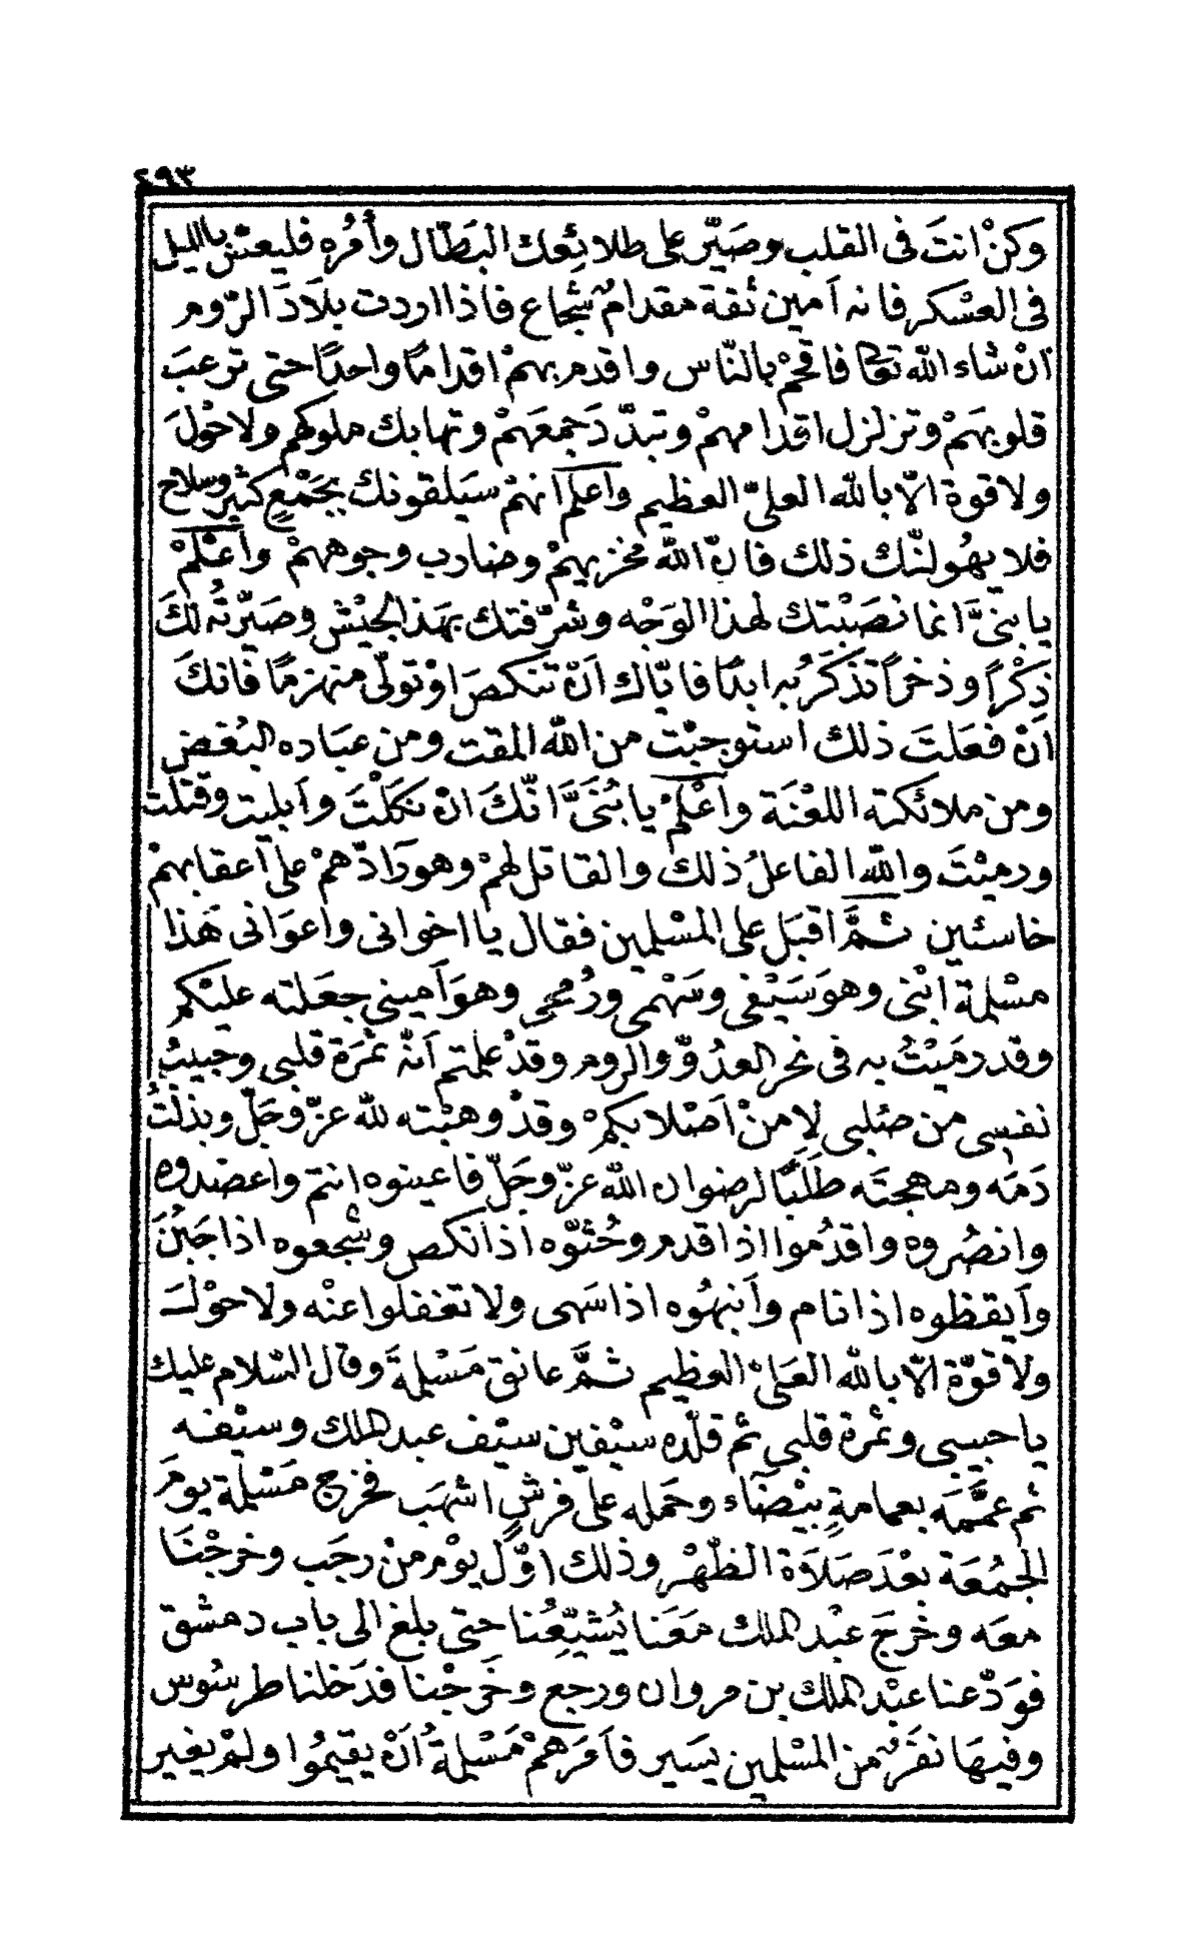 ٤٩٣
وكنْ انتَ فى القلب وصَيّر على طلائِعك البَطّال وأمُره فليعتس بالليل
فى العسْكر فانه اَمين ثقة مقدامٌ شجاع فاذا اردت بلاَدَ الرّوم
انْ شاء الله تعالى فاقحمْ بالنّاس واقدم بهمْ اقدامًا واحدًا حتى ترعبَ
قلوبهَمْ وتزلزل اقدامهمْ وتبدّدَ جمعَهمْ وتهابك ملوكهم ولاحْولَ
ولاقوة الّا بالله العلىّ العظيم واعلم انهمْ سيَلقونك بجَمْعٍ كثير وسلاح
فلا يهُولنّك ذلك فانّ الله مخزيهمْ وضارب وجوههمْ وأعْلمْ
يا بنىَّ انما نصَبْتك لهذا الوَجْه وشرّفتك بهَذا الجيْش وصَيّرتُه لكَ
ذِكْراً وذخراً تذكَرُ به ابدًا فايّاك اَنْ تنكصَ اوْ تولّى منهزمًا فانكَ
اَنْ فعَلتَ ذلك استوجبْت من الله المقت ومن عبَاده البُغض
ومن ملائكته اللعْنَة وأعْلمْ يا بُنَىَّ انّكَ انْ نكَلْتَ وأبليت وقتلت
ورميْتَ والله الفاعلُ ذلك والقاتل لهمْ وهورَادّهمْ على أعقابهمْ
خاسئين ثمَّ اقبَل على المسْلمين فقال يا اخوانى واعوَانى هَذا
مسْلمة ابْنى وهوَ سَيْفى وسَهْمى ورُمحى وهوَ أمينى جعَلته عليْكم
وقد رمَيْتُ به فى نحر العدُوّ والروم وقدْ علمتم اَنّه ثمْرَة قلبى وحبيبُ
نفسى من صُلبى لِا منْ اَصْلابكمْ وقدْ وهبْته لله عزّ وجَلّ وبذلتُ
دَمَه ومهجتَه طلَبًا لرضوان الله عزّ وجَلّ فاعينوه انتم واعضدوه
وانصُروه واقدُموا اذا اقدم وحُثوّه اذا نكص وشجعوه اذا جَبُنَ
وأيقظوه اذا نام وأنبهُوه اذا سَهى ولا تغفلوا عنْه ولا حوْلَ
ولا قوّة الّا بالله العَلىّ العظيم ثمَّ عانق مَسْلمةَ وقال السّلام عليك
يا حبيبى وثمْرة قلبى ثم قلّده سيْفين سيْف عبد الملك وسيْفه
ثم عمَّمَه بعمامةِ بيْضَاء وحَمله على فرسٍ اشهَب فخرج مَسْلمة يومَ
الجمُعَة بعْدَ صَلاَة الظهْر وذلك اوّل يوْم من رجَب وخرجْنَا
معَه وخرجَ عبْد الملك مَعَنا يُشيّعُنا حتى بلغ الى باب دمشق
فوَدّعنا عبْد الملك بن مروان ورجع وخَرجْنا فدَخلنا طرسُوس
وفيهَا نفَرٌ من المسْلمين يسَير فأمَرهمْ مَسْلمةُ انْ يقيمُوا ولمْ يغير